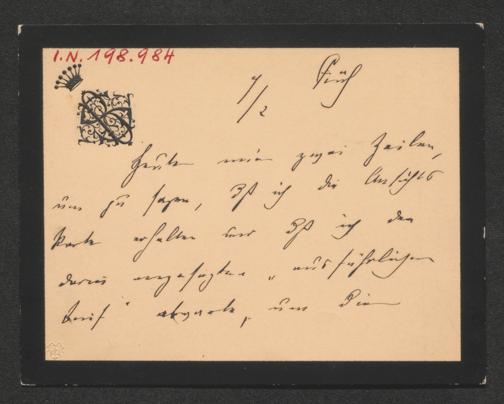 I.N. 198.984
7/2 Früh
Heute nur zwei Zeilen,
um zu sagen, daß ich die Ansichts
Karte erhalten und daß ich den
darin angesagten „ausführlichen
Brief" abwarte, um Dir